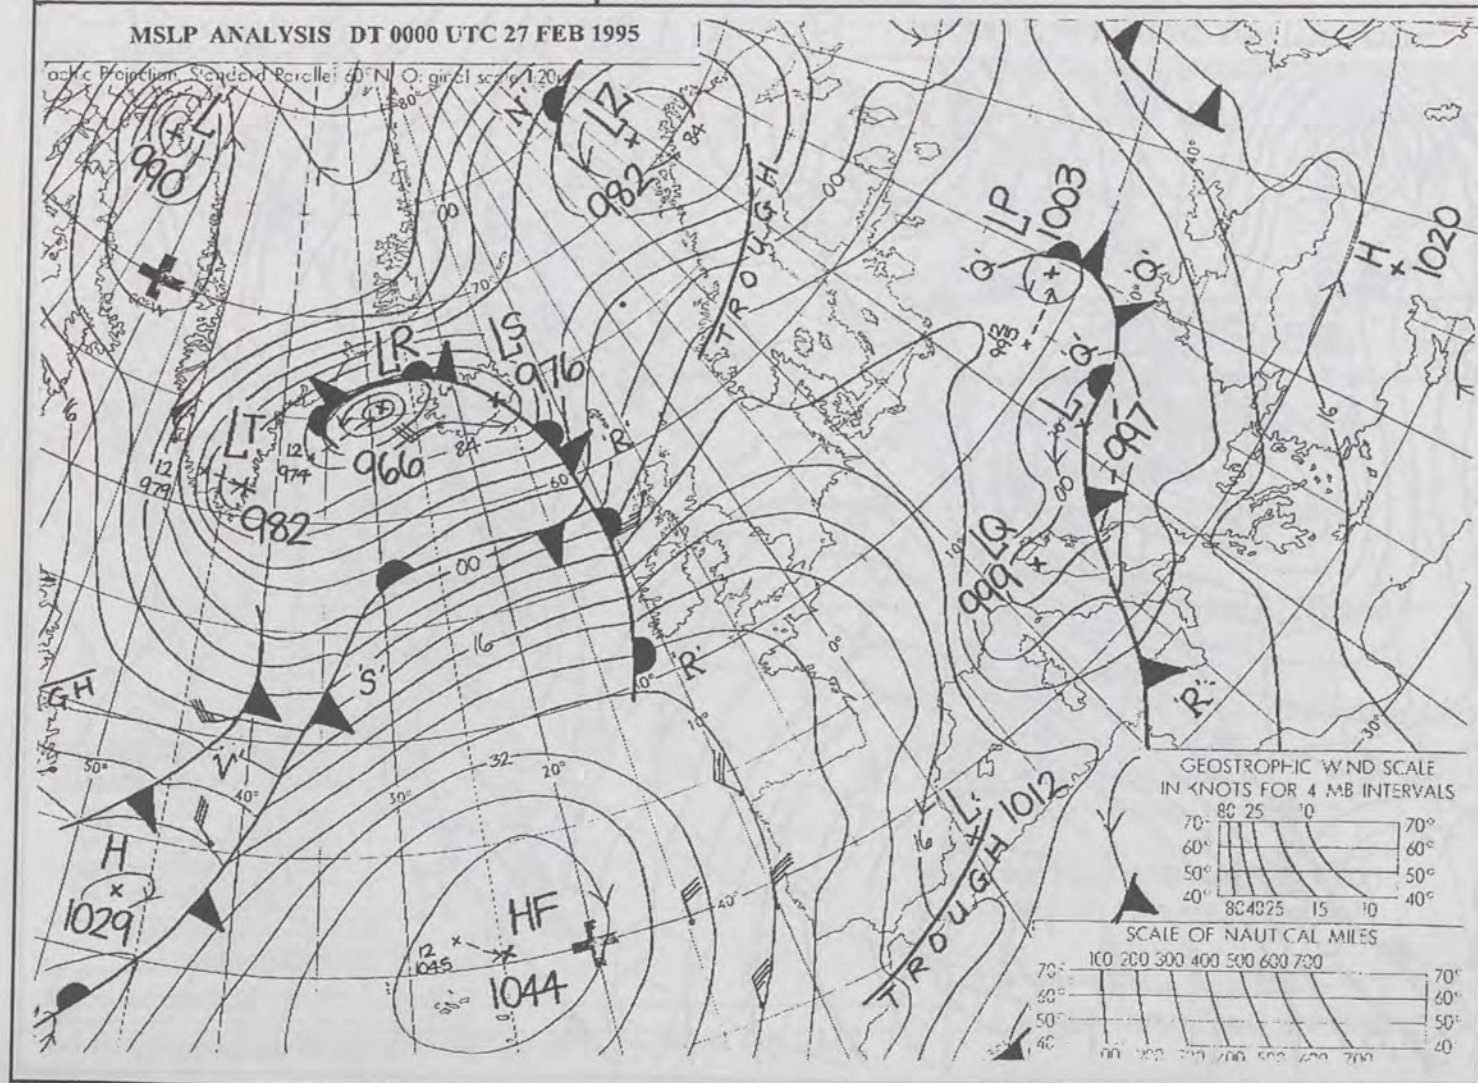 MSLP ANALYSIS DT 0000 UTC 27 FEB 1995
Projection, Standard Parallel 60°N, Original scale 1:20
L
990
80°
N'
LZ
982
84
TROUGH
00
00
70°
60°W
LP
1003
'Q'
'Q'
'Q'
12
995
40°
H
1020
16
LR
LS
976
LT
966
84
12
974
12
979
982
'R'
60
L
997
00
LQ
999
10°
16
00
16
'S'
GH
50°
40°
30°
20°
10°
32
'R'
10°
0°
'R'
30°
H
1029
12
1045
HF
1044
40°
L
1012
16
TROUGH
GEOSTROPHIC WIND SCALE
IN KNOTS FOR 4 MB INTERVALS
80 25 10
70° 70°
60° 60°
50° 50°
40° 40°
80 40 25 15 10
SCALE OF NAUTICAL MILES
100 200 300 400 500 600 700
70° 70°
60° 60°
50° 50°
40 40°
100 200 300 400 500 600 700